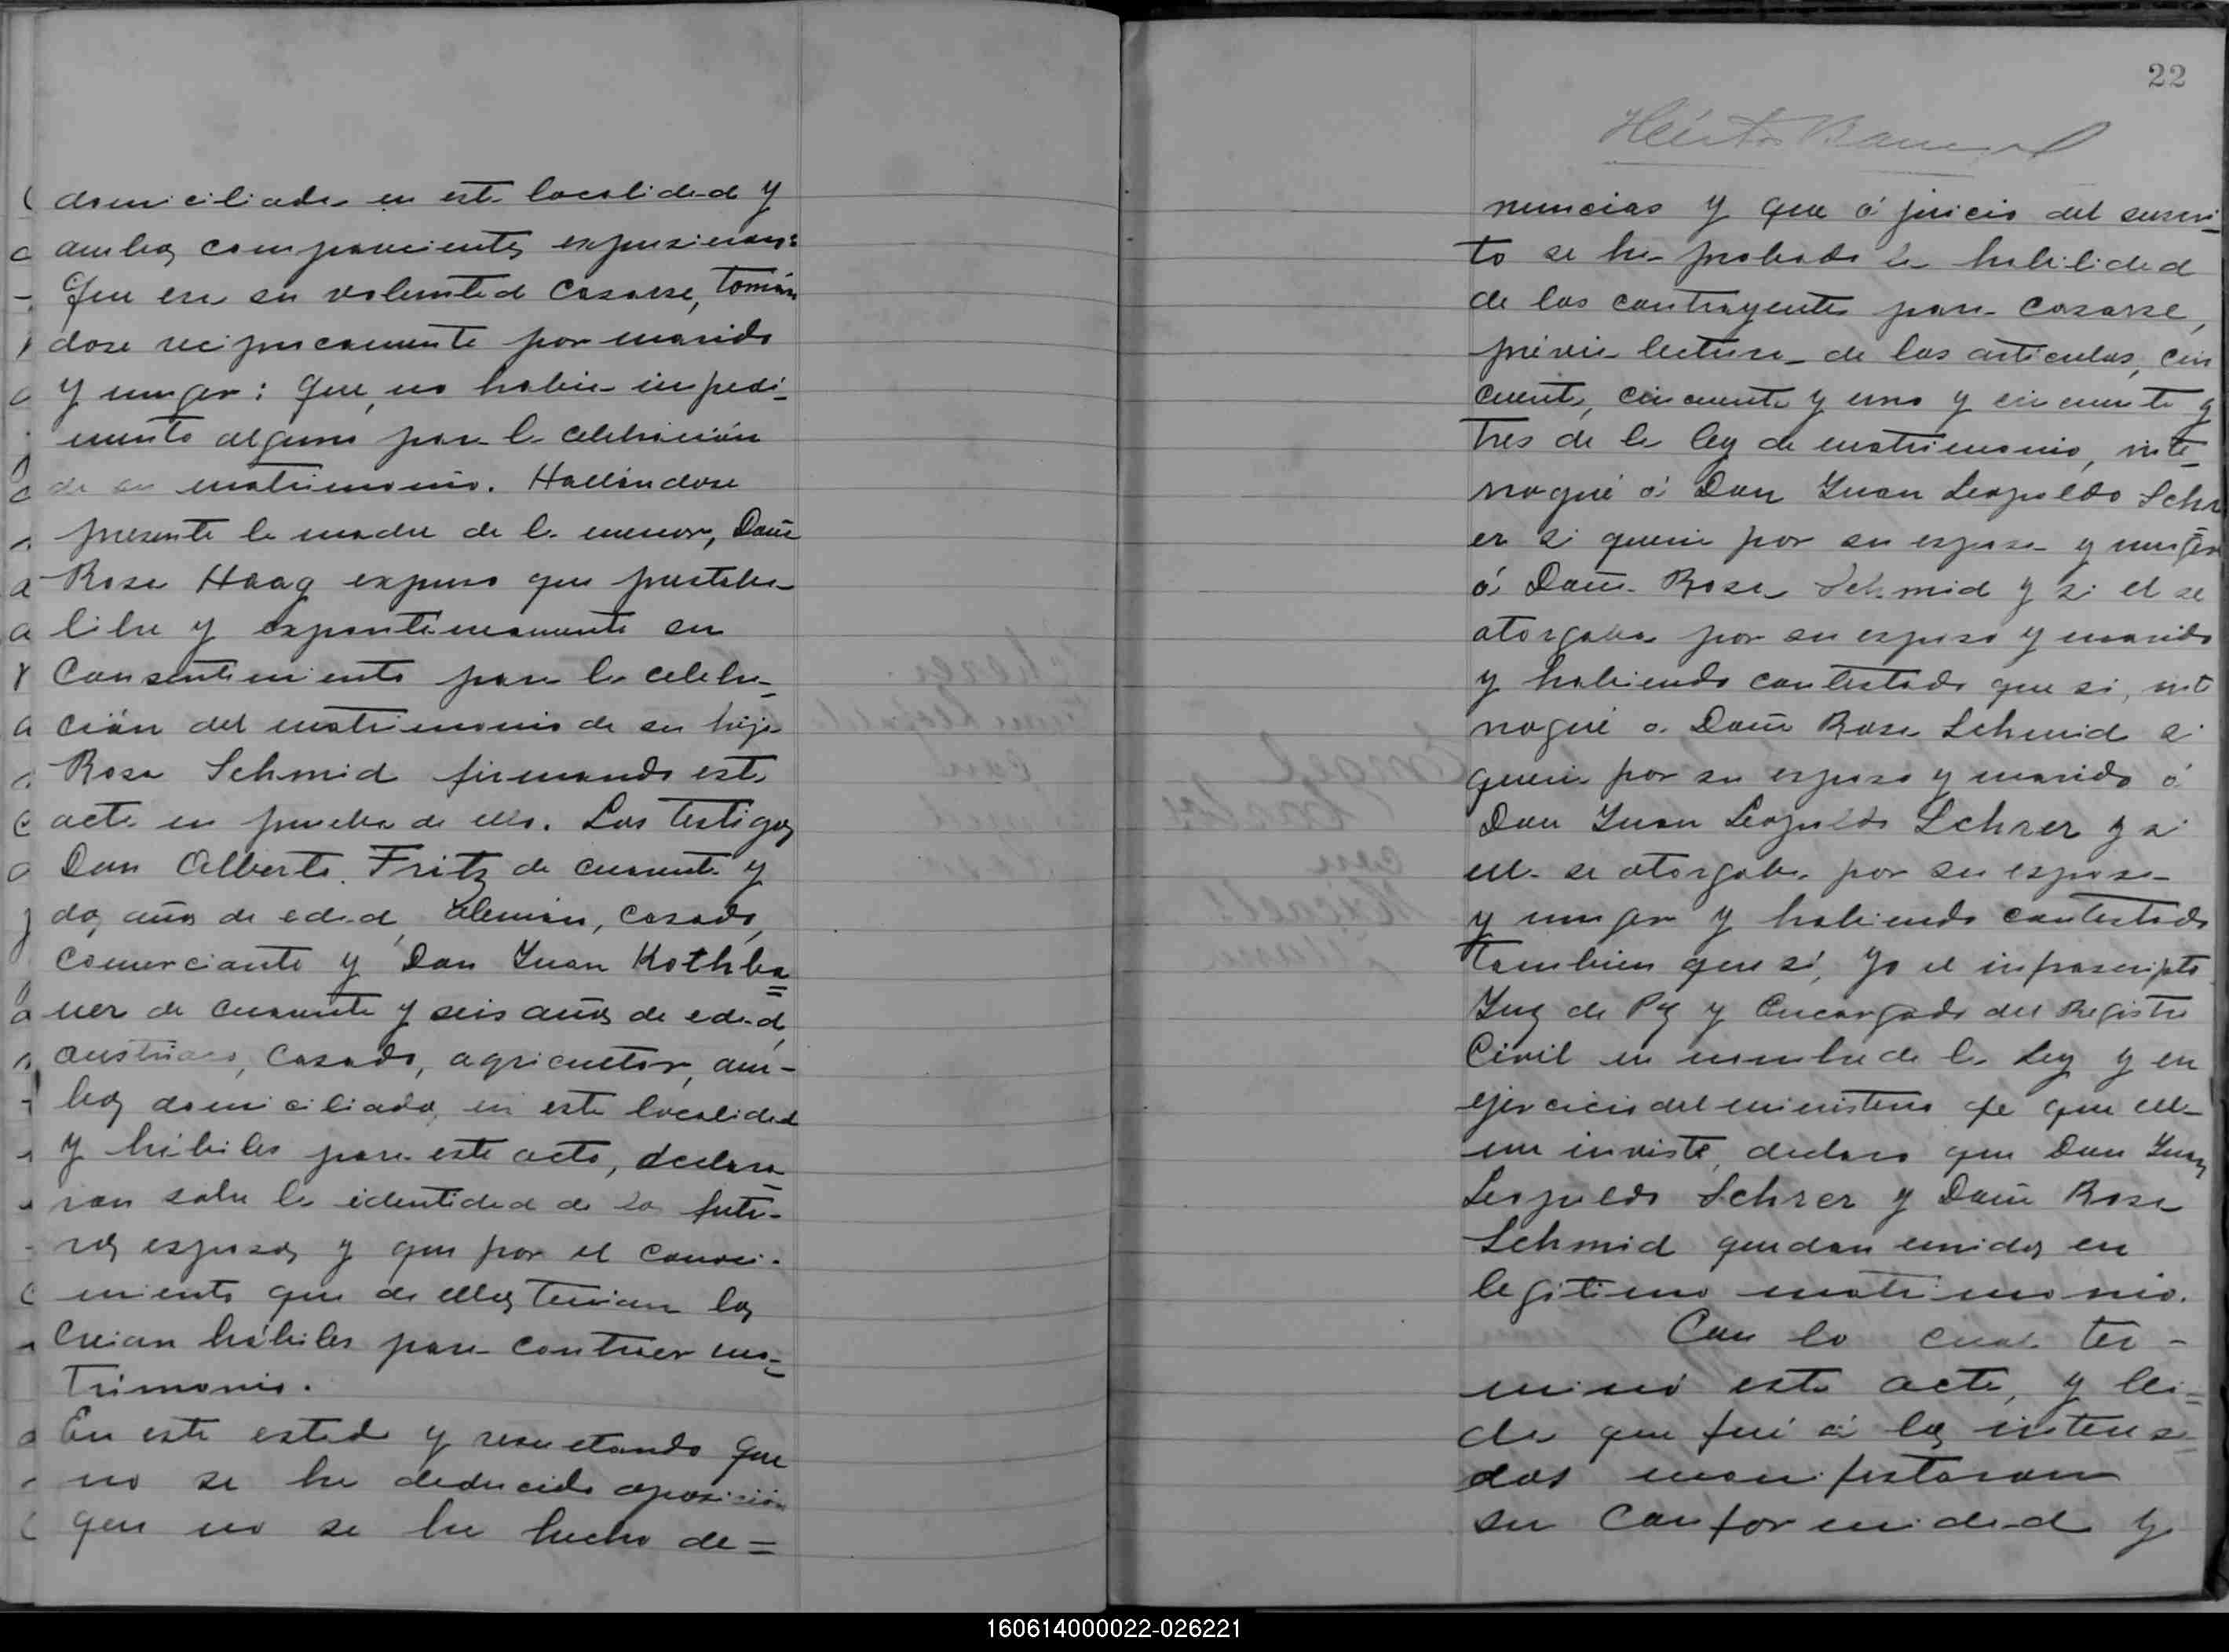 domiciliada en esta localidad y
ambos comparecientes expusieron:
Que era su voluntad casarse, tomán
dose reciprocamente por marido
y muger: Que, no habia impedi-
mento alguno para la celebración
de su matrimonio. Hallándose
presente la madre de la menor, Doña
Rosa Haag expuso que prestaba
libre y expontáneamente su
consentimiento para la celebra-
ción del matrimonio de su hija
Rosa Schmid firmando esta
acta en prueba de ello. Los testigos
Don Alberto Fritz de cuarenta y
dos años de edad, aleman, casado,
comerciante y Don Juan Kothba
uer de cuarenta y seis años de edad,
austriaco, casado, agricultor, am-
bos domiciliados en esta localidad
y hábiles para este acto, declara
ron sobre la identidad de los futu-
ros esposos y que por el conoci-
miento que de ellos tenian los
creian hábiles para contraer ma-
trimonio.
En este estado y resultando que
no se ha deducido oposición
que no se ha hecho de=
22
nuncias y que á juicio del suscri-
to se ha probado la habilidad
de los contrayentes para casarse,
prévia lectura de los articulos, cin
cuenta, cincuenta y uno y cincuenta y
tres de la ley de matrimonio, inte-
rrogué á Don Juan Leopoldo Schr
er si queria por su esposa y muger
á Doña Rosa Schmid y si el se
otorgaba por su esposo y marido
y habiendo contestado que si, inte
rrogué a Doña Rosa Schmid si
queria por su esposo y marido á
Don Juan Leopoldo Schrer y si
ella se otorgaba por su esposa
y muger y habiendo contestado
tambien que si, Yo el infrascripto
Juez de Paz y Encargado del Registro
Civil en nombre de la Ley y en
ejercicio del ministerio de que ella
me inviste, declaro que Don Juan
Leopoldo Schrer y Doña Rosa
Schmid quedan unidos en
legitimo matrimonio.
Con lo cual ter-
minó esta acta, y lei=
da que fué á los interesa-
dos manifestaron
su conformidad y
160614000022-026221